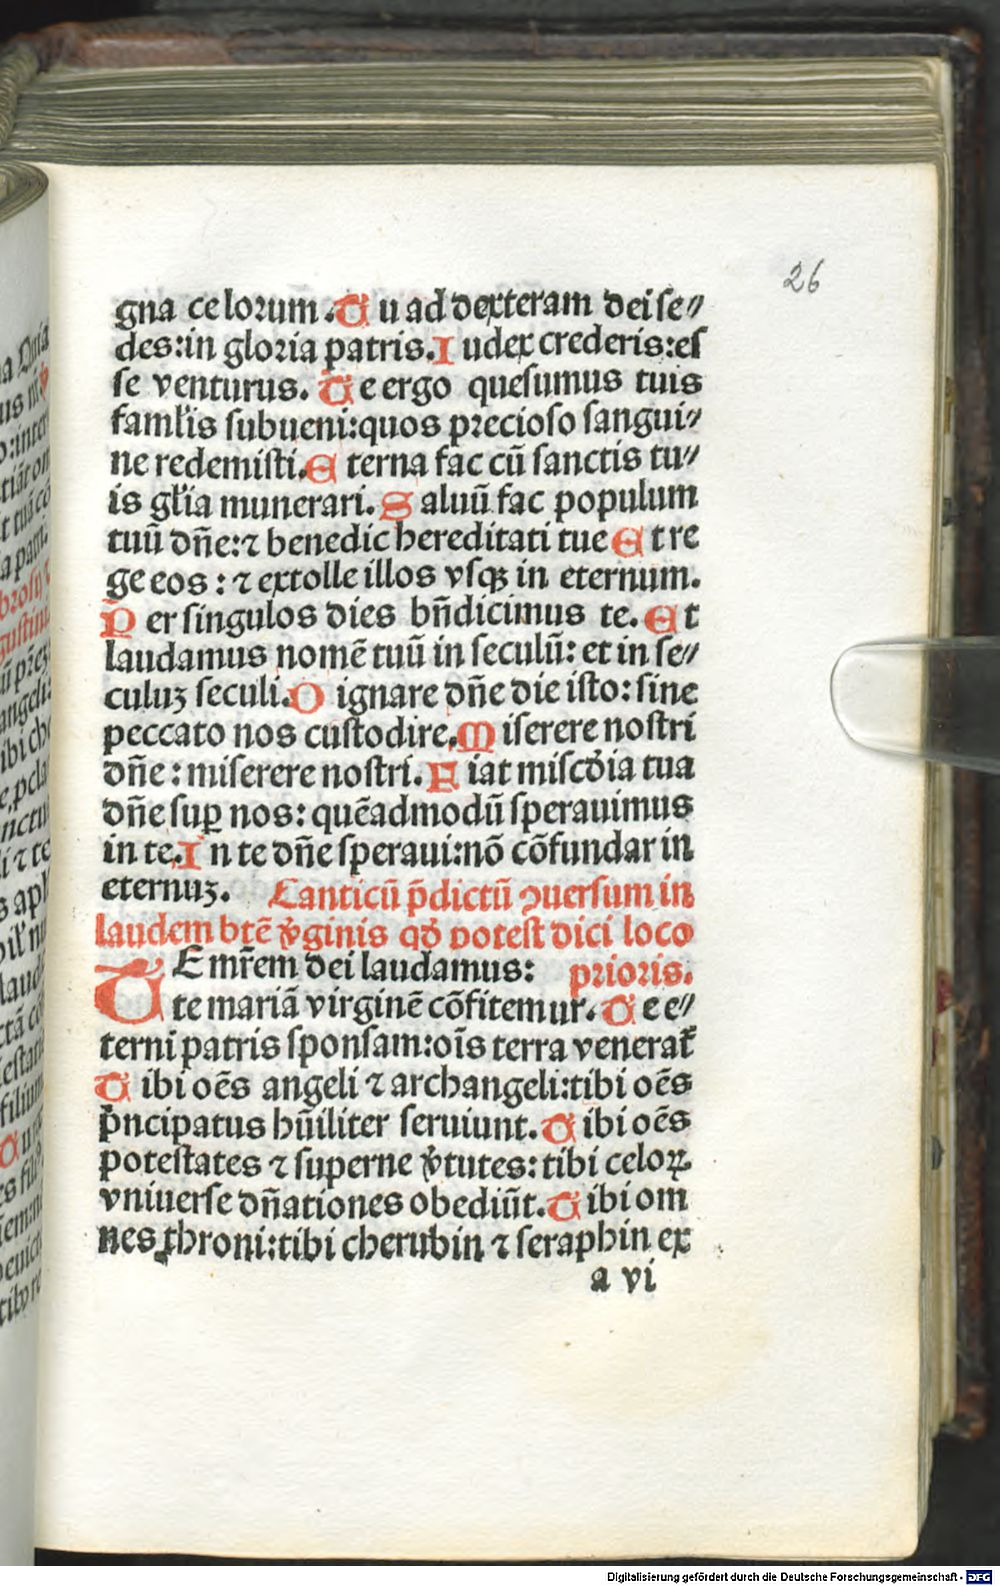 26
gna celorum. Tu ad dexteram dei se⸗
des: in gloria patris. Iudex crederis: es
se venturus. Te ergo quesumus tuis
famĺis subueni: quos precioso sangui⸗
ne redemisti. Eterna fac cū sanctis tu⸗
is gĺia munerari. Saluū fac populum
tuū dn̄e: ⁊ benedic hereditati tue Et re
ge eos: ⁊ extolle illos vsqꝫ in eternum.
Per singulos dies bn̄dicimus te. Et
laudamus nomē tuū in seculū: et in se⸗
culuꝫ seculi. Dignare dn̄e die isto: sine
peccato nos custodire. Miserere nostri
dn̄e: miserere nostri. Fiat misc̄dia tua
dn̄e suꝑ nos: quēadmodū sperauimus
in te. In te dn̄e speraui: nō cōfundar in
eternuꝫ. Canticū p̄dictū ꝯuersum in
laudem btē v̓ginis qd̄ potest dici loco
TE mr̄em dei laudamus: prioris.
te mariā virginē cōfitemur. Te e⸗
terni patris sponsam: oīs terra venerat᷑
Tibi oēs angeli ⁊ archangeli: tibi oēs
p̓ncipatus hūiliter seruiunt. Tibi oēs
potestates ⁊ superne v̓tutes: tibi celoꝝ
vniuerse dn̄ationes obediūt. Tibi om
nes throni: tibi cherubin ⁊ seraphin ex
a vi
Digitalisierung gefördert durch die Deutsche Forschungsgemeinschaft - DFG